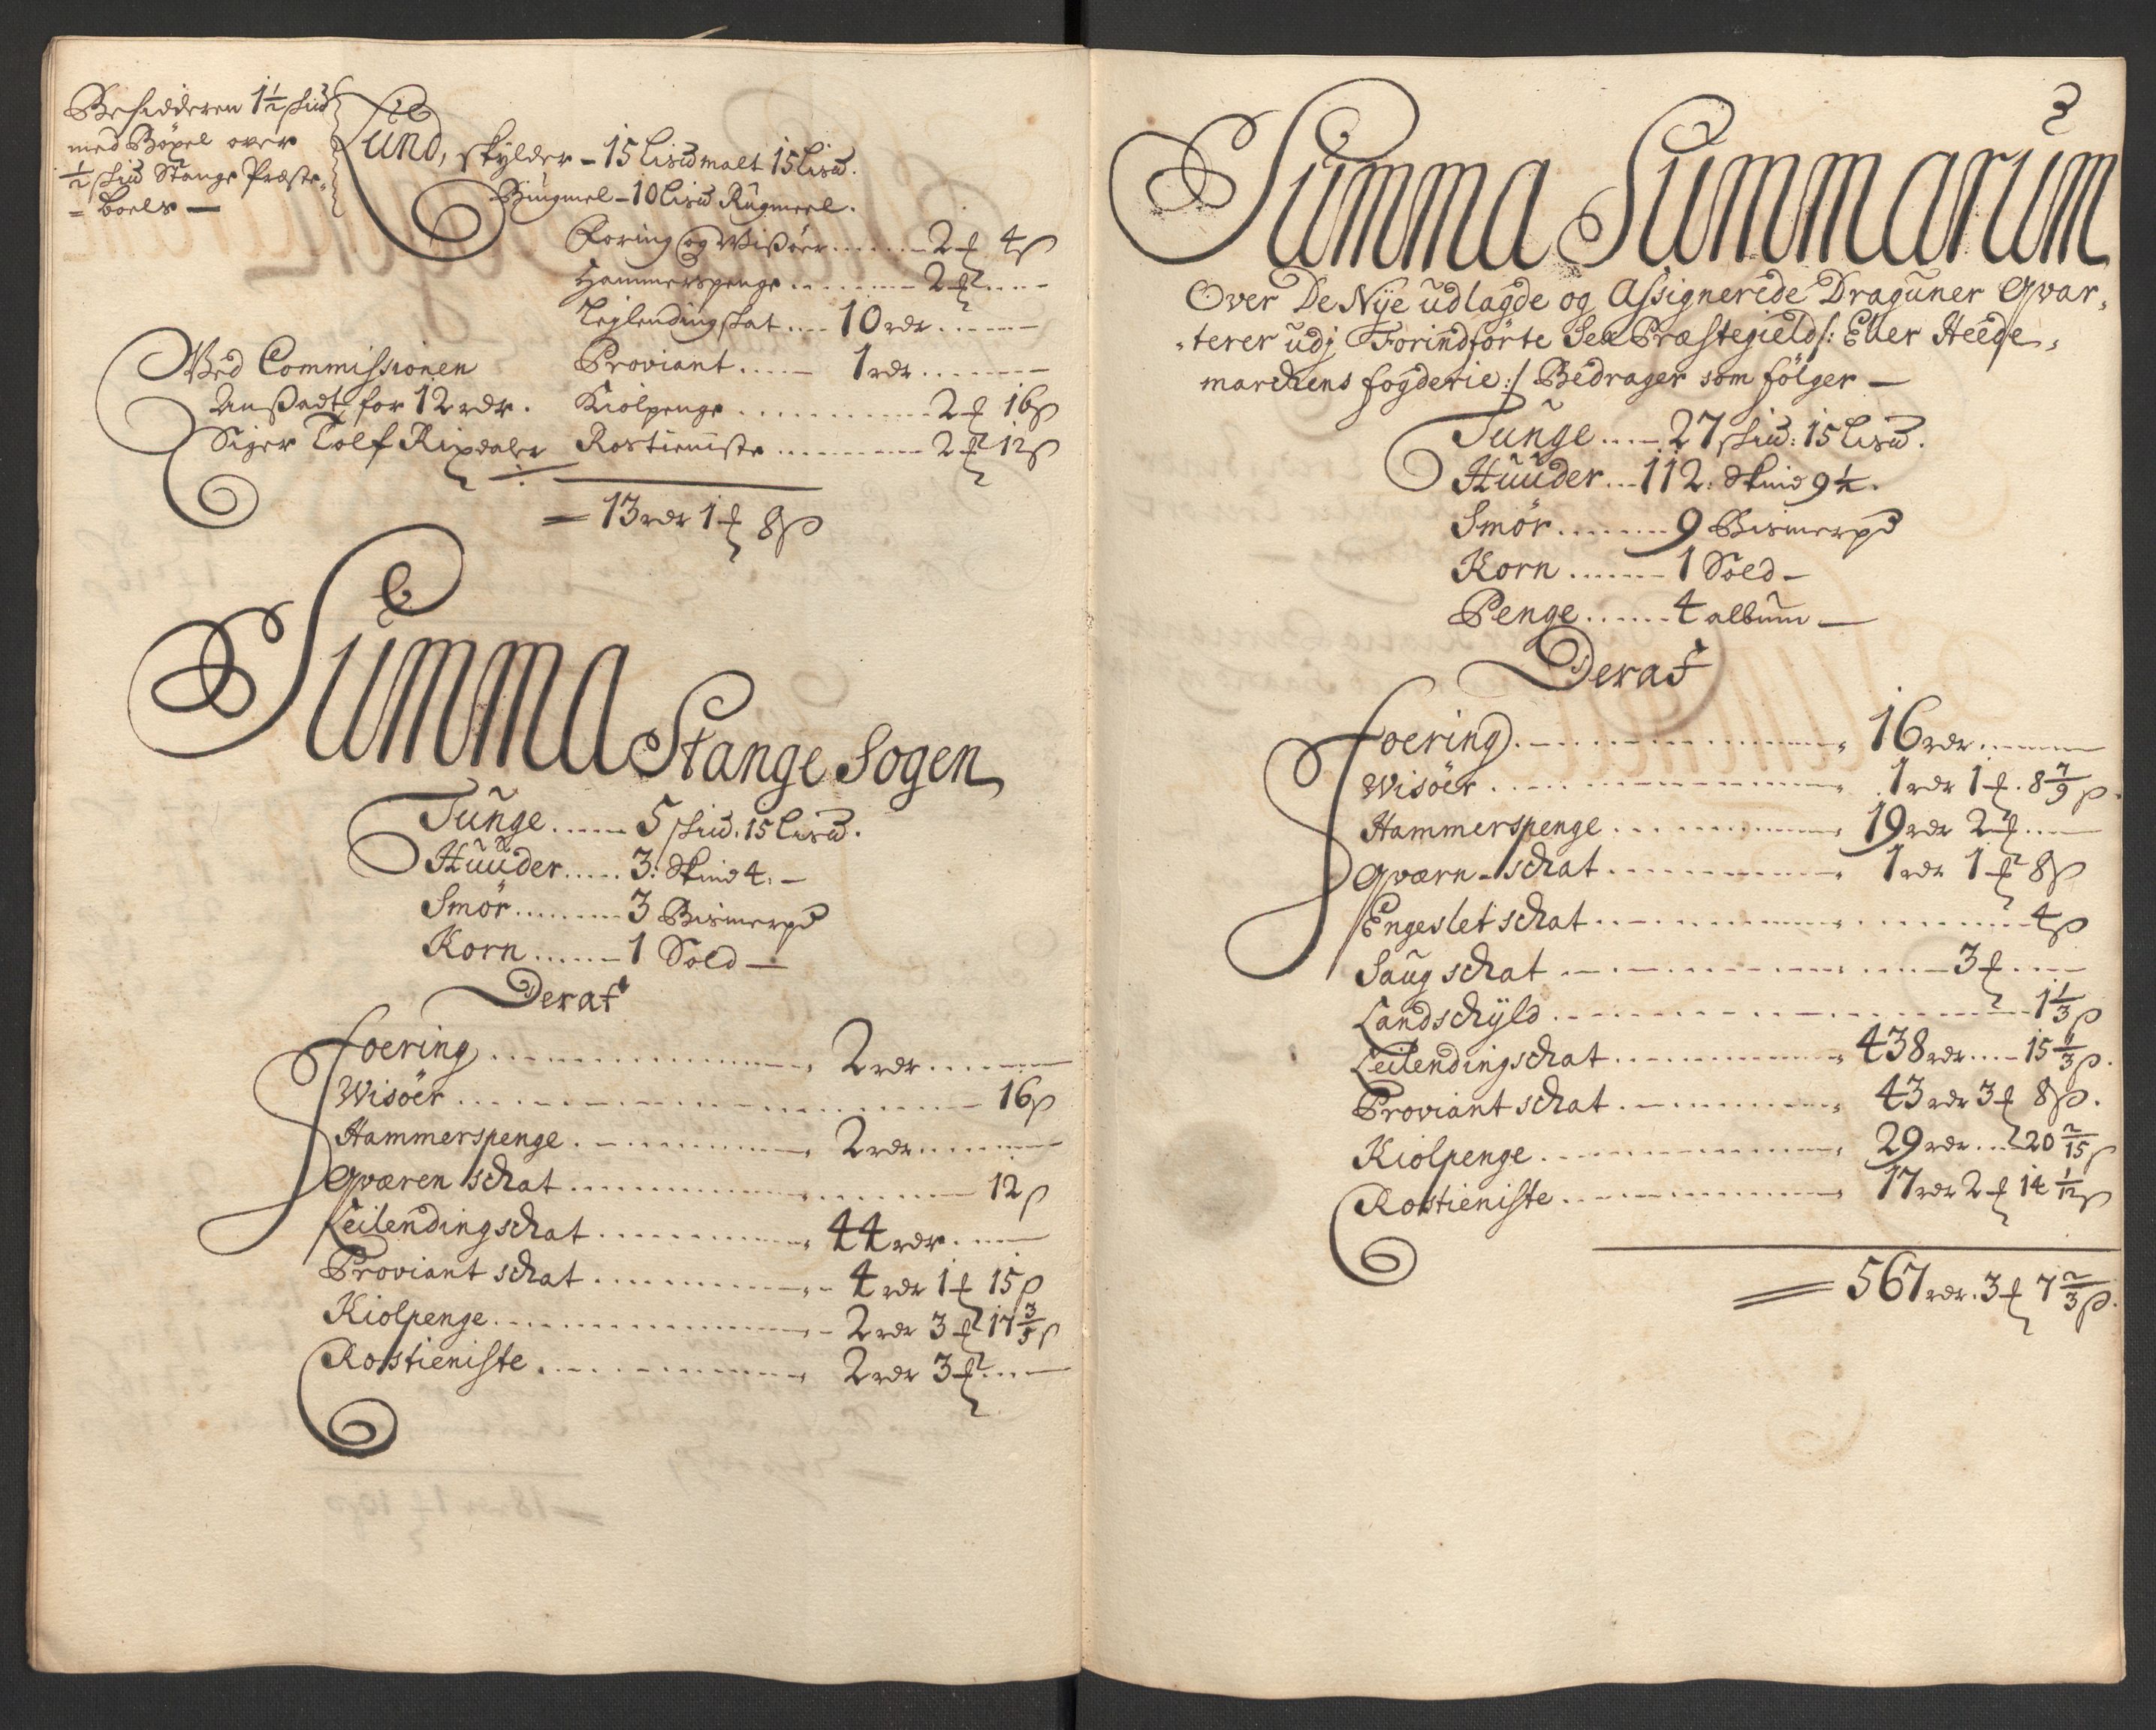 Besidderen 1½ skiu
med Böxel over
½ skiu Stange Præste-
= boels —
Lund, skylder - 15 Lisu malt 15 Lisu.
Biugmel - 10 Lisu Rugmeel.
Foring og Wisöer ....... 2 ƒ 4 β
Hammerspenge ....... 2 ƒ ....
Leylendingskat .... 10 rdr ......
Proviant ..... 1 rdr .......
Kiolpenge ............ 2 ƒ 16 β
Rostieniste ......... 2 ƒ 12 β
Ved Commissionen
Ansadt for 12 rdr.
Siger Tolf Rixdaler
= 13 rdr 1 ƒ 8 β
Summa Stange Sogen
Tunge ..... 5 skiu. 15 Lisu.
Huuder ..... 3: Skind 4: —
Smör ........ 3 Bismerpd
Korn ...... 1 Sold —
Deraf
Foering ............ 2 rdr ......
Wisöer ............ 16 β
Hammerspenge ............ 2 rdr ......
Qværen schat ............ 12 β
Leilendingschat ............ 44 rdr .....
Proviant schat ............ 4 rdr 1 ƒ 15 β
Kiolpenge ............ 2 rdr 3 ƒ 17 3/5 β
Rostieniste ............ 2 rdr 3 ƒ ....
3
Summa Summarum
Over De Nÿe udlagde og Assignerede Draguner Qvar-
-terer udj Forindförte Sex Præstegield /: Eller Heede-
marckens fogderie :/ Bedrager som fölger —
Tunge .... 27 skiu: 15 Lisu.
Huuder ... 112: Skind 9½.
Smör ....... 9 Bismerpd
Korn ...... 1 Sold —
Penge ...... 4 album —
Deraf
Foering ............ 16 rdr ......
Wisöer ............ 1 rdr 1 ƒ. 8 7/9 β.
Hammerspenge ............ 19 rdr 2 ƒ ....
Qværn-schat ............ 1 rdr 1 ƒ 8 β
Engeslet schat ............ 4 β
Saug schat ............ 3 ƒ ....
Landschÿld ............ 1 1/3 β
Leilendingschat ............ 438 rdr .... 15 1/3 β.
Proviant schat ............ 43 rdr 3 ƒ 8 β.
Kiolpenge ............ 29 rdr .... 20 2/15 β
Rostieniste ............ 17 rdr 2 ƒ 14 1/12 β
= 567 rdr. 3 ƒ 7 2/3 β.